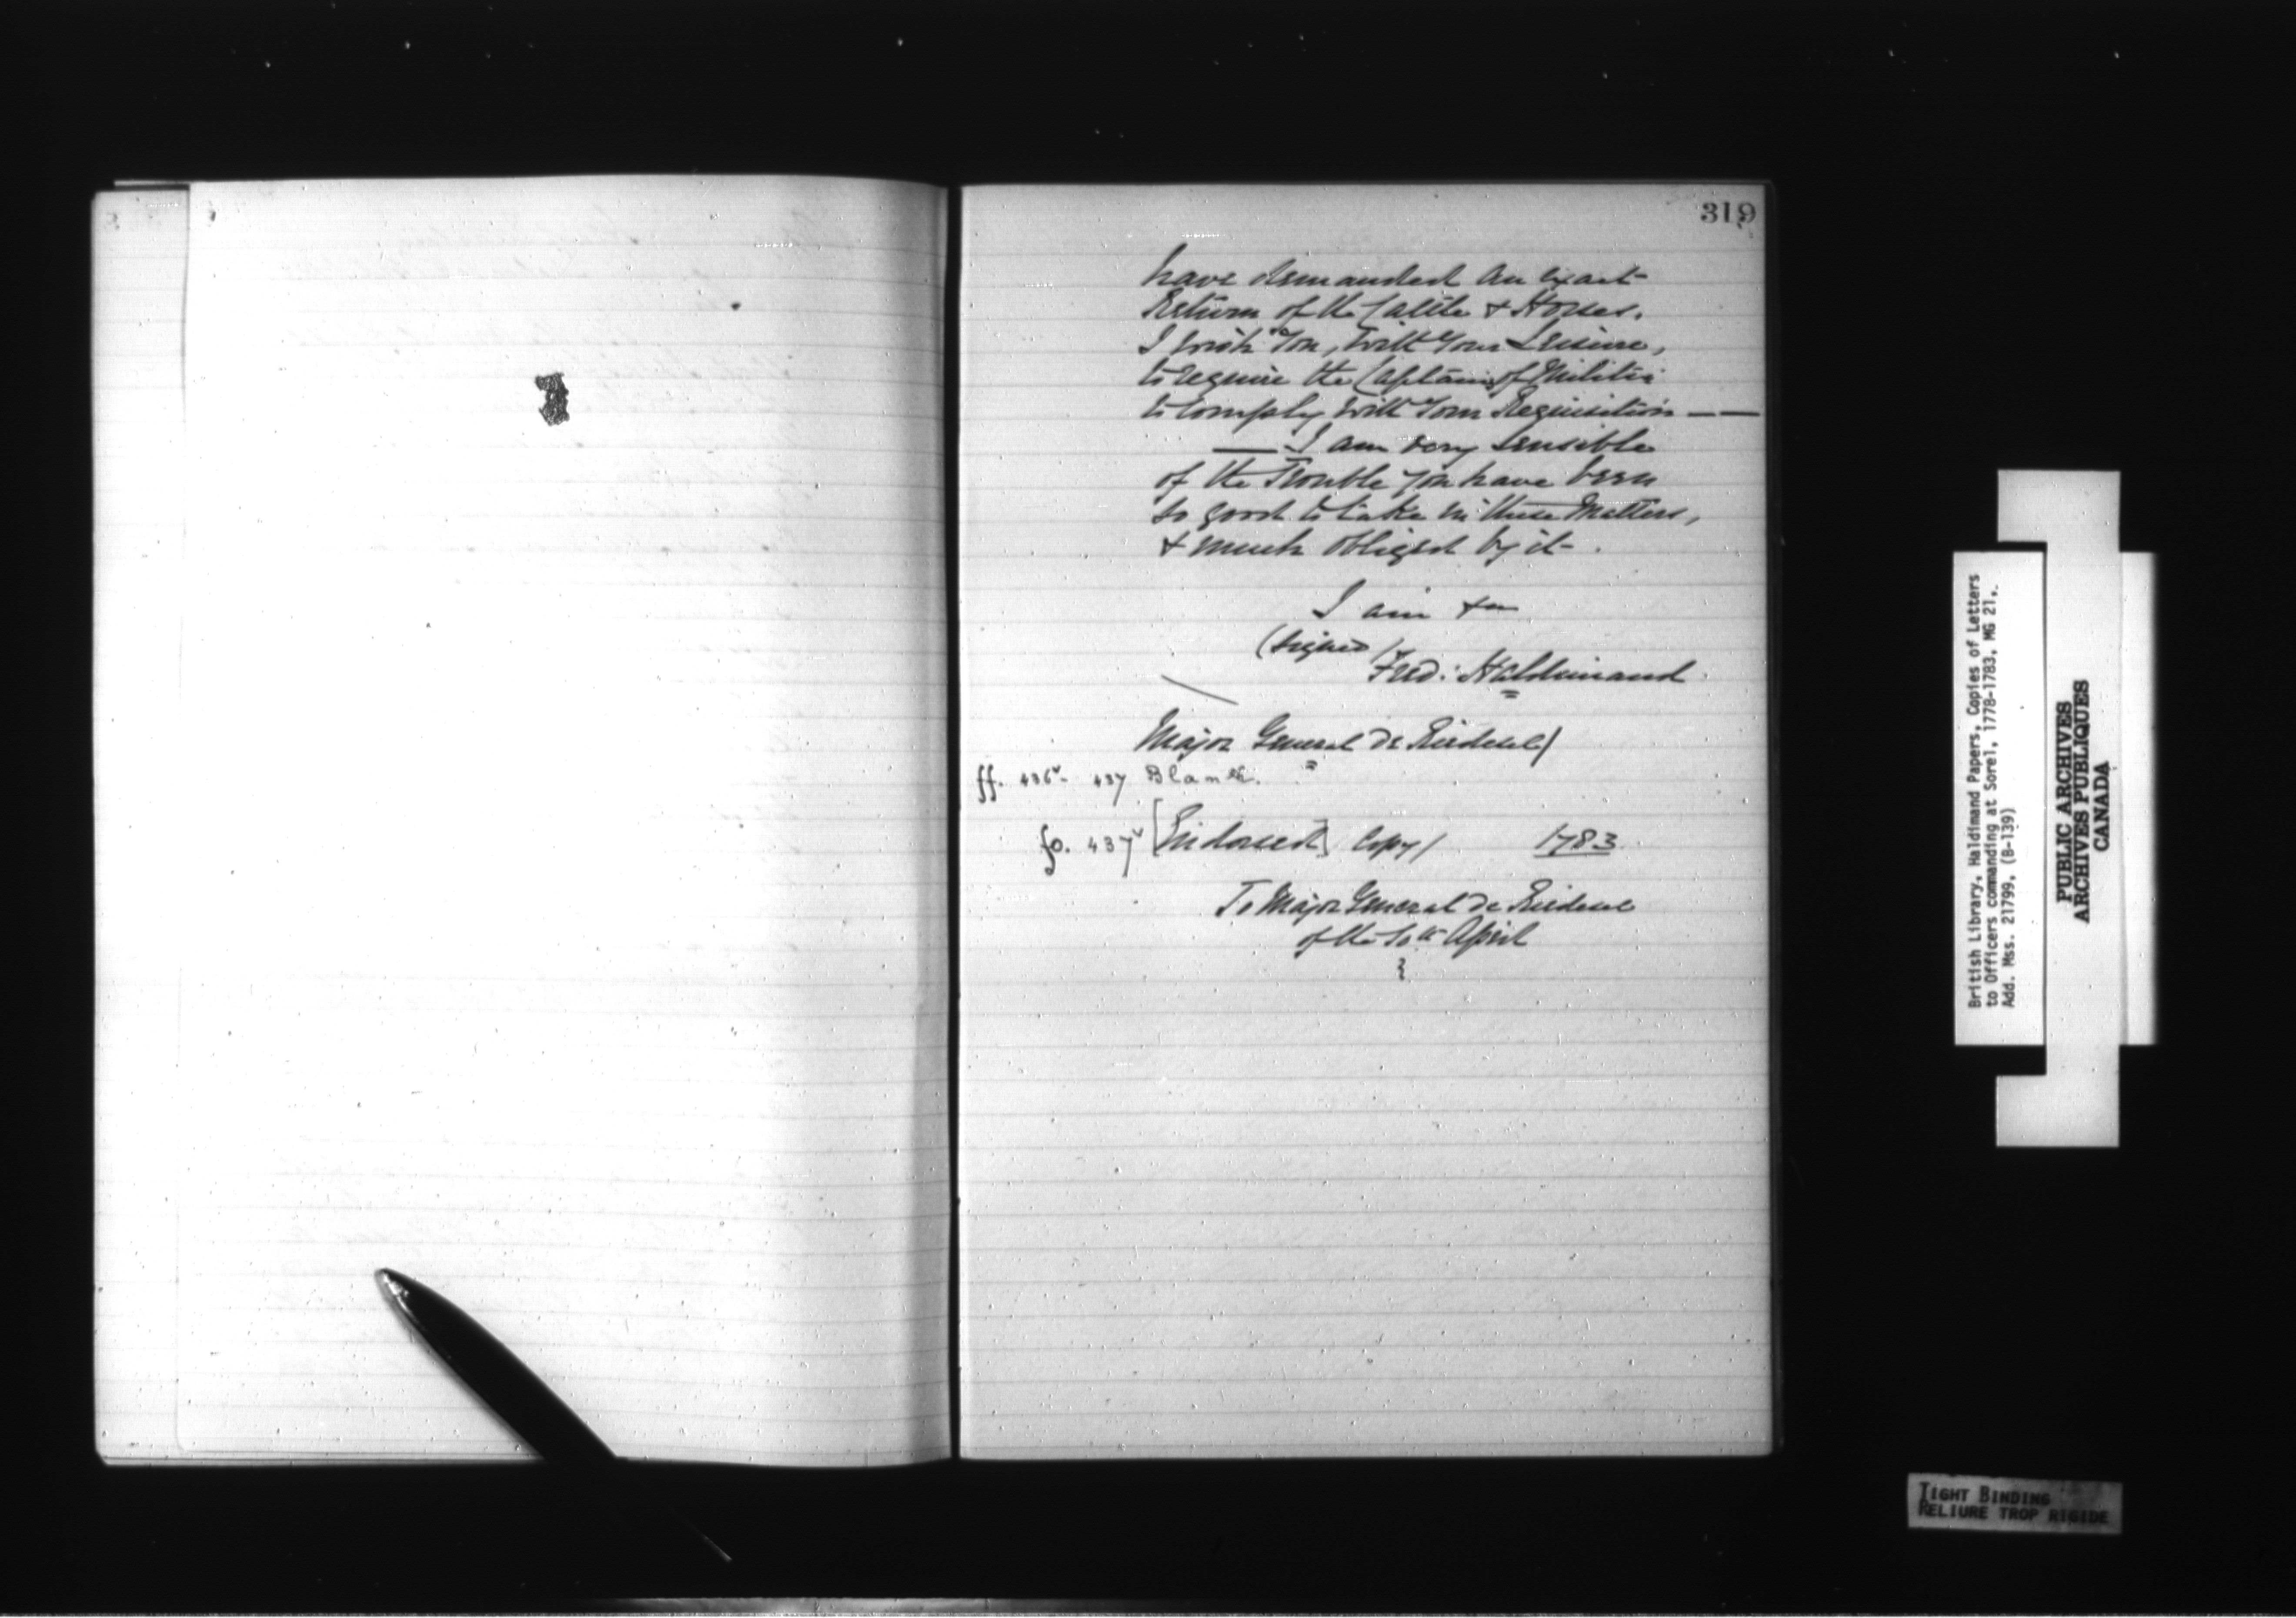 319
have demanded an exact
Return of the Cattle & Horses.
I wish You, with Your Leisure,
to require the Captains of Militia
to comply with Your Requisition — —
— I am very sensible
of the Trouble you have been
so good to take in these Matters,
& much obliged by it.
I am &ca
(signed)
Fred: Haldimand
Major General De Riedesel/
ff. 436v - 437 Blank.
fo. 437v [Endorsed] Copy/ 1783
To Major General De Riedesel
of the 10th April
British Library, Haldimand Papers, Copies of Letters
to Officers commanding at Sorel, 1778-1783, MG 21,
Add. Mss. 21799, (B-139)
PUBLIC ARCHIVES
ARCHIVES PUBLIQUES
CANADA
TIGHT BINDING
RELIURE TROP RIGIDE